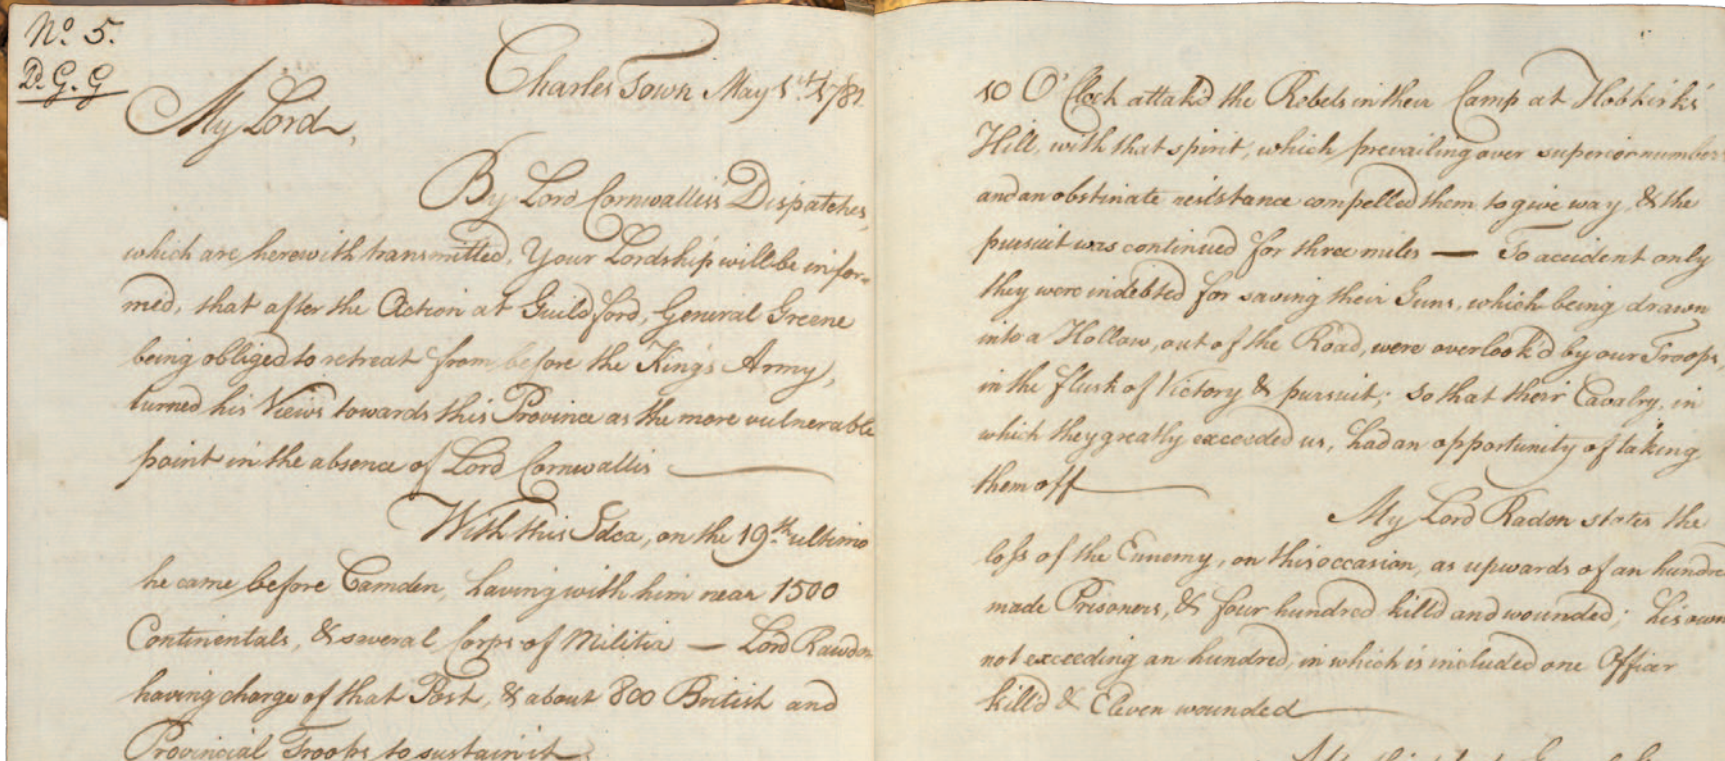 No. 5.
D. G. G
Charles Town May 1st 1781
My Lord,
By Lord Cornwallis's Dispatches,
which are herewith transmitted, Your Lordship will be infor=
med, that after the Action at Guildford, General Greene
being obliged to retreat from before the King's Army,
turned his Views towards this Province as the more vulnerable
point in the absence of Lord Cornwallis —
With this Idea, on the 19th ultimo
he came before Camden, having with him near 1500
Continentals, & several Corps of Militia — Lord Rawdon
having charge of that Post, & about 800 British and
Provincial Troops to sustain it
10 O'Clock attak'd the Rebels in their Camp at Hobkirks'
Hill, with that spirit, which prevailing over superior number
and an obstinate resistance compelled them to give way, & the
pursuit was continued for three miles — To accident only
they were indebted for saving their Guns, which being drawn
into a Hollow, out of the Road, were overlook'd by our Troops,
in the flush of Victory & pursuit; so that their Cavalry, in
which they greatly exceeded us, had an opportunity of taking
them off —
My Lord Radon states the
loss of the Ennemy, on this occasion, as upwards of an hundred
made Prisoners, & four hundred kill'd and wounded; his own
not exceeding an hundred, in which is included one Officer
kill'd & Eleven wounded —